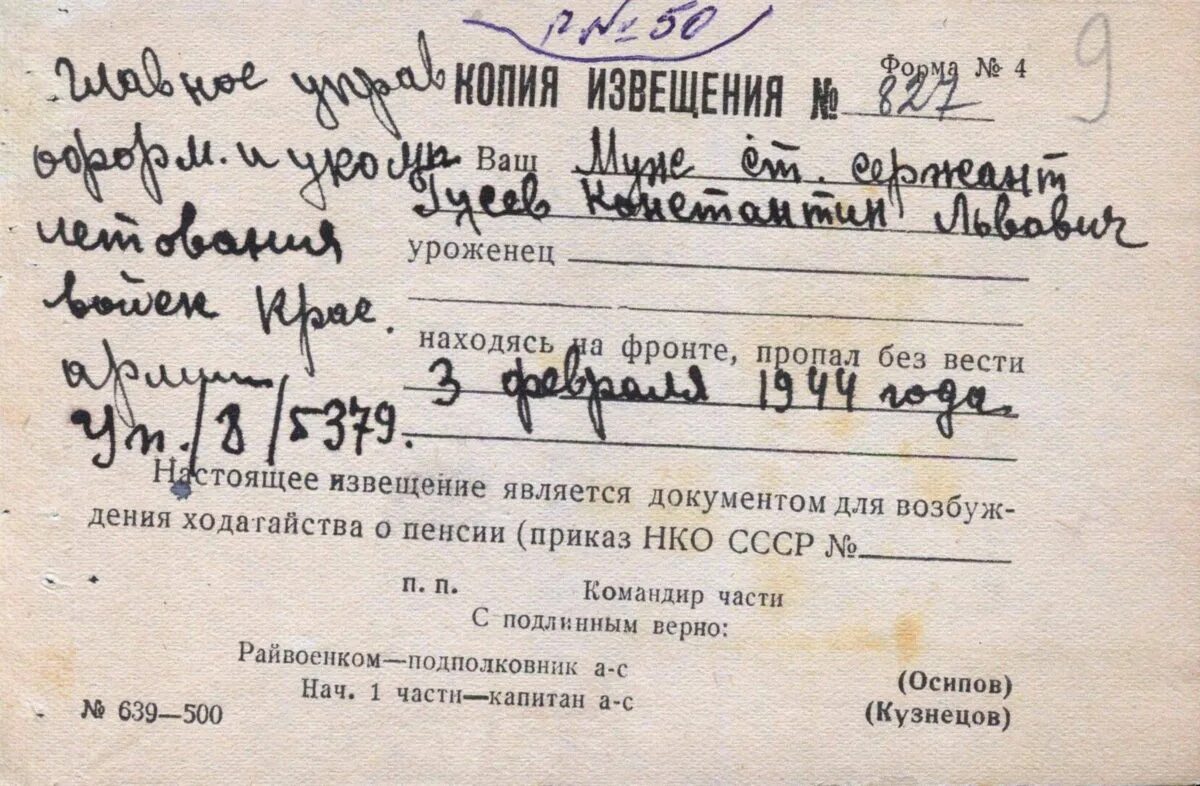 р №50
9
Форма № 4
КОПИЯ ИЗВЕЩЕНИЯ № 827
Главное управ
оформ. и укомп
летования
войск Крас.
армии
Уп./8/5379.
Ваш Муж ст. сержант
Гусев Константин Львович
уроженец
находясь на фронте, пропал без вести
3 февраля 1944 года.
Настоящее извещение является документом для возбуж-
дения ходатайства о пенсии (приказ НКО СССР №
п. п. Командир части
С подлинным верно:
Райвоенком—подполковник а-с (Осипов)
Нач. 1 части—капитан а-с (Кузнецов)
№ 639—500